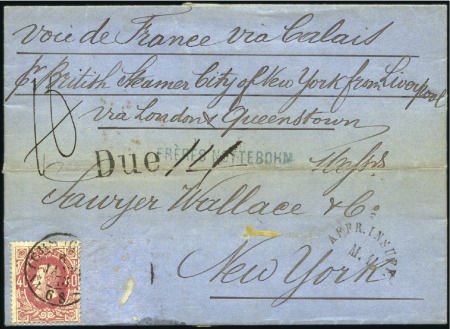 voie de France via Calais
pr British Steamer City of New York from Liverpool
via London & Queenstown
Due
FRÈRES NOTTEBOHM
Messrs
Sawyer Wallace & Co
AFFR. INSUFF.
New York
40 40